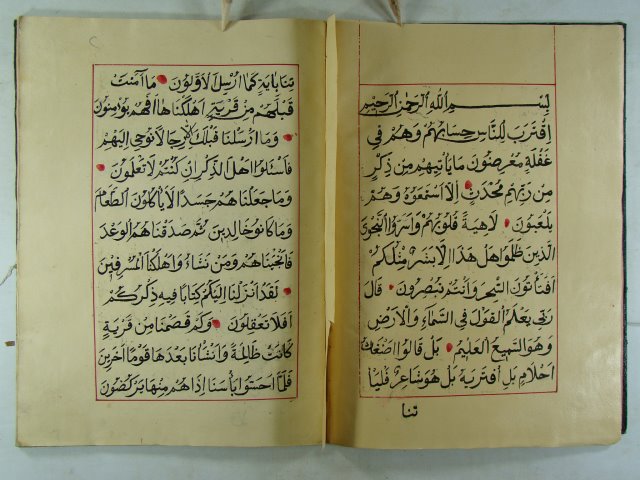 بسم الله الرحمن الرحيم
اقترب للناس حسابهم وهم في
غفلة معرضون ما ياتيهم من ذكر
من ربهم محدث الا استمعوه وهم
يلعبون لاهية قلوبهم واسروا النجوى
الذين ظلموا هل هذا الا بشر مثلكم
افتأتون السحر وانتم تبصرون قال
ربي يعلم القول في السماء والارض
وهو السميع العليم بل قالوا اضغاث
احلام بل افتريه بل هو شاعر فليأ
تنا
تنا باية كما ارسل الاولون ما آمنت
قبلهم من قرية اهلكناها افهم يؤمنون
وما ارسلنا قبلك الا رجالا نوحي اليهم
فاسئلوا اهل الذكر ان كنتم لا تعلمون
وما جعلناهم جسدا لا ياكلون الطعام
وما كانوا خالدين ثم صدقناهم الوعد
فانجيناهم ومن نشاء واهلكنا المسرفين
لقد انزلنا اليكم كتابا فيه ذكركم
افلا تعقلون وكم قصمنا من قرية
كانت ظالمة وانشأنا بعدها قوما آخرين
فلما احسوا بأسنا اذا هم منها يركضون